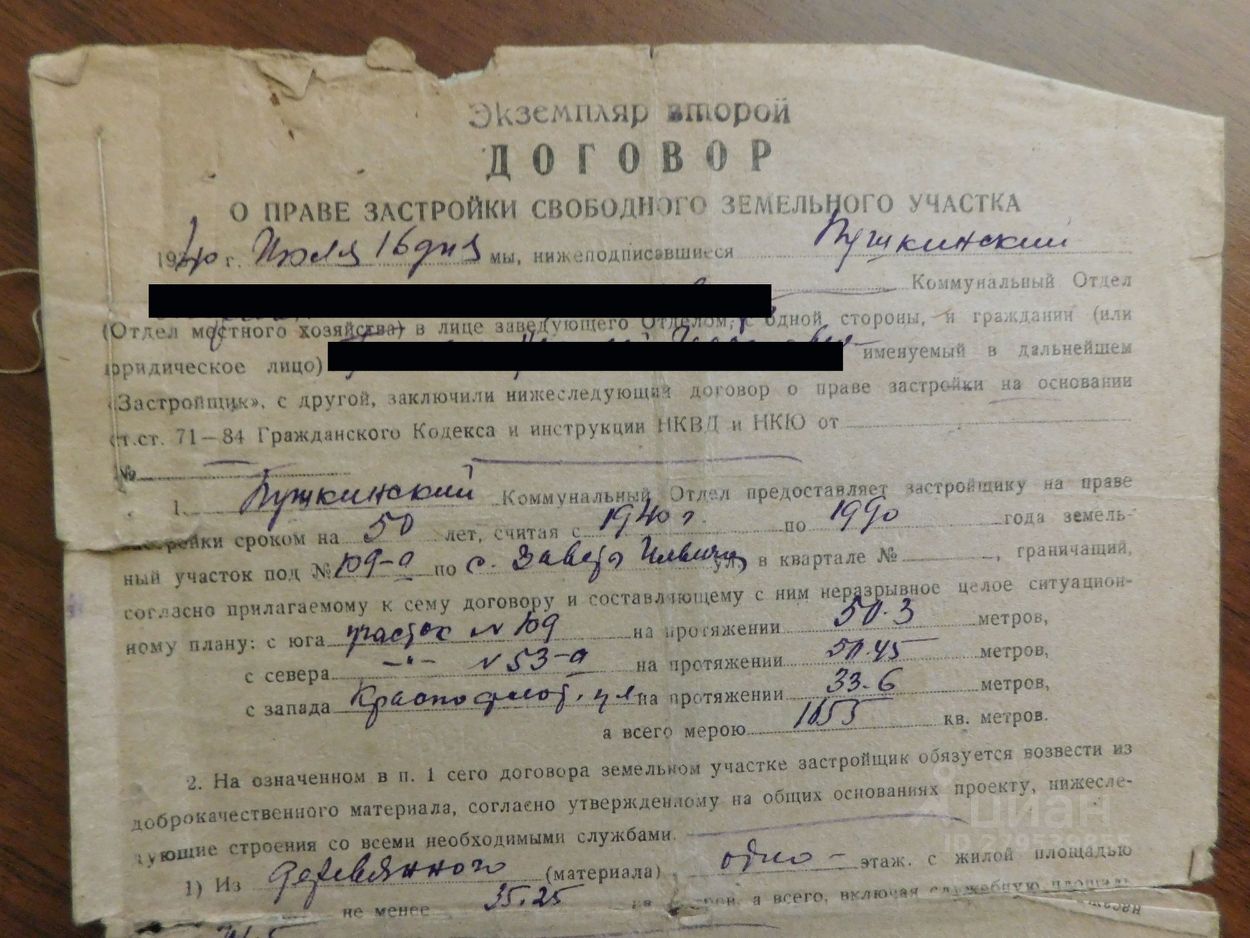 Экземпляр второй
ДОГОВОР
О ПРАВЕ ЗАСТРОЙКИ СВОБОДНОГО ЗЕМЕЛЬНОГО УЧАСТКА
1940 г. Июля 16 дня мы, нижеподписавшиеся Пушкинский
Коммунальный Отдел
(Отдел местного хозяйства) в лице заведующего Отделом, с одной стороны, и гражданин (или
юридическое лицо) именуемый в дальнейшем
«Застройщик», с другой, заключили нижеследующий договор о праве застройки на основании
ст.ст. 71—84 Гражданского Кодекса и инструкции НКВД и НКЮ от
№
1. Пушкинский Коммунальный Отдел предоставляет застройщику на праве
застройки сроком на 50 лет, считая с 1940 г. по 1990 года земель-
ный участок под № 109-а по с. Заветы Ильича ул. в квартале № , граничащий,
согласно прилагаемому к сему договору и составляющему с ним неразрывное целое ситуацион-
ному плану: с юга участок № 109 на протяжении 50.3 метров,
с севера -"- № 53-а на протяжении 50.45 метров,
с запада Краснофлот. ул. на протяжении 33.6 метров,
а всего мерою кв. метров.
2. На означенном в п. 1 сего договора земельном участке застройщик обязуется возвести из
доброкачественного материала, согласно утвержденному на общих основаниях проекту, нижесле-
дующие строения со всеми необходимыми службами.
1) Из деревянного (материала) одно- этаж. с жилой площадью
не менее 35.25 а всего, включая служебную площадь
циан